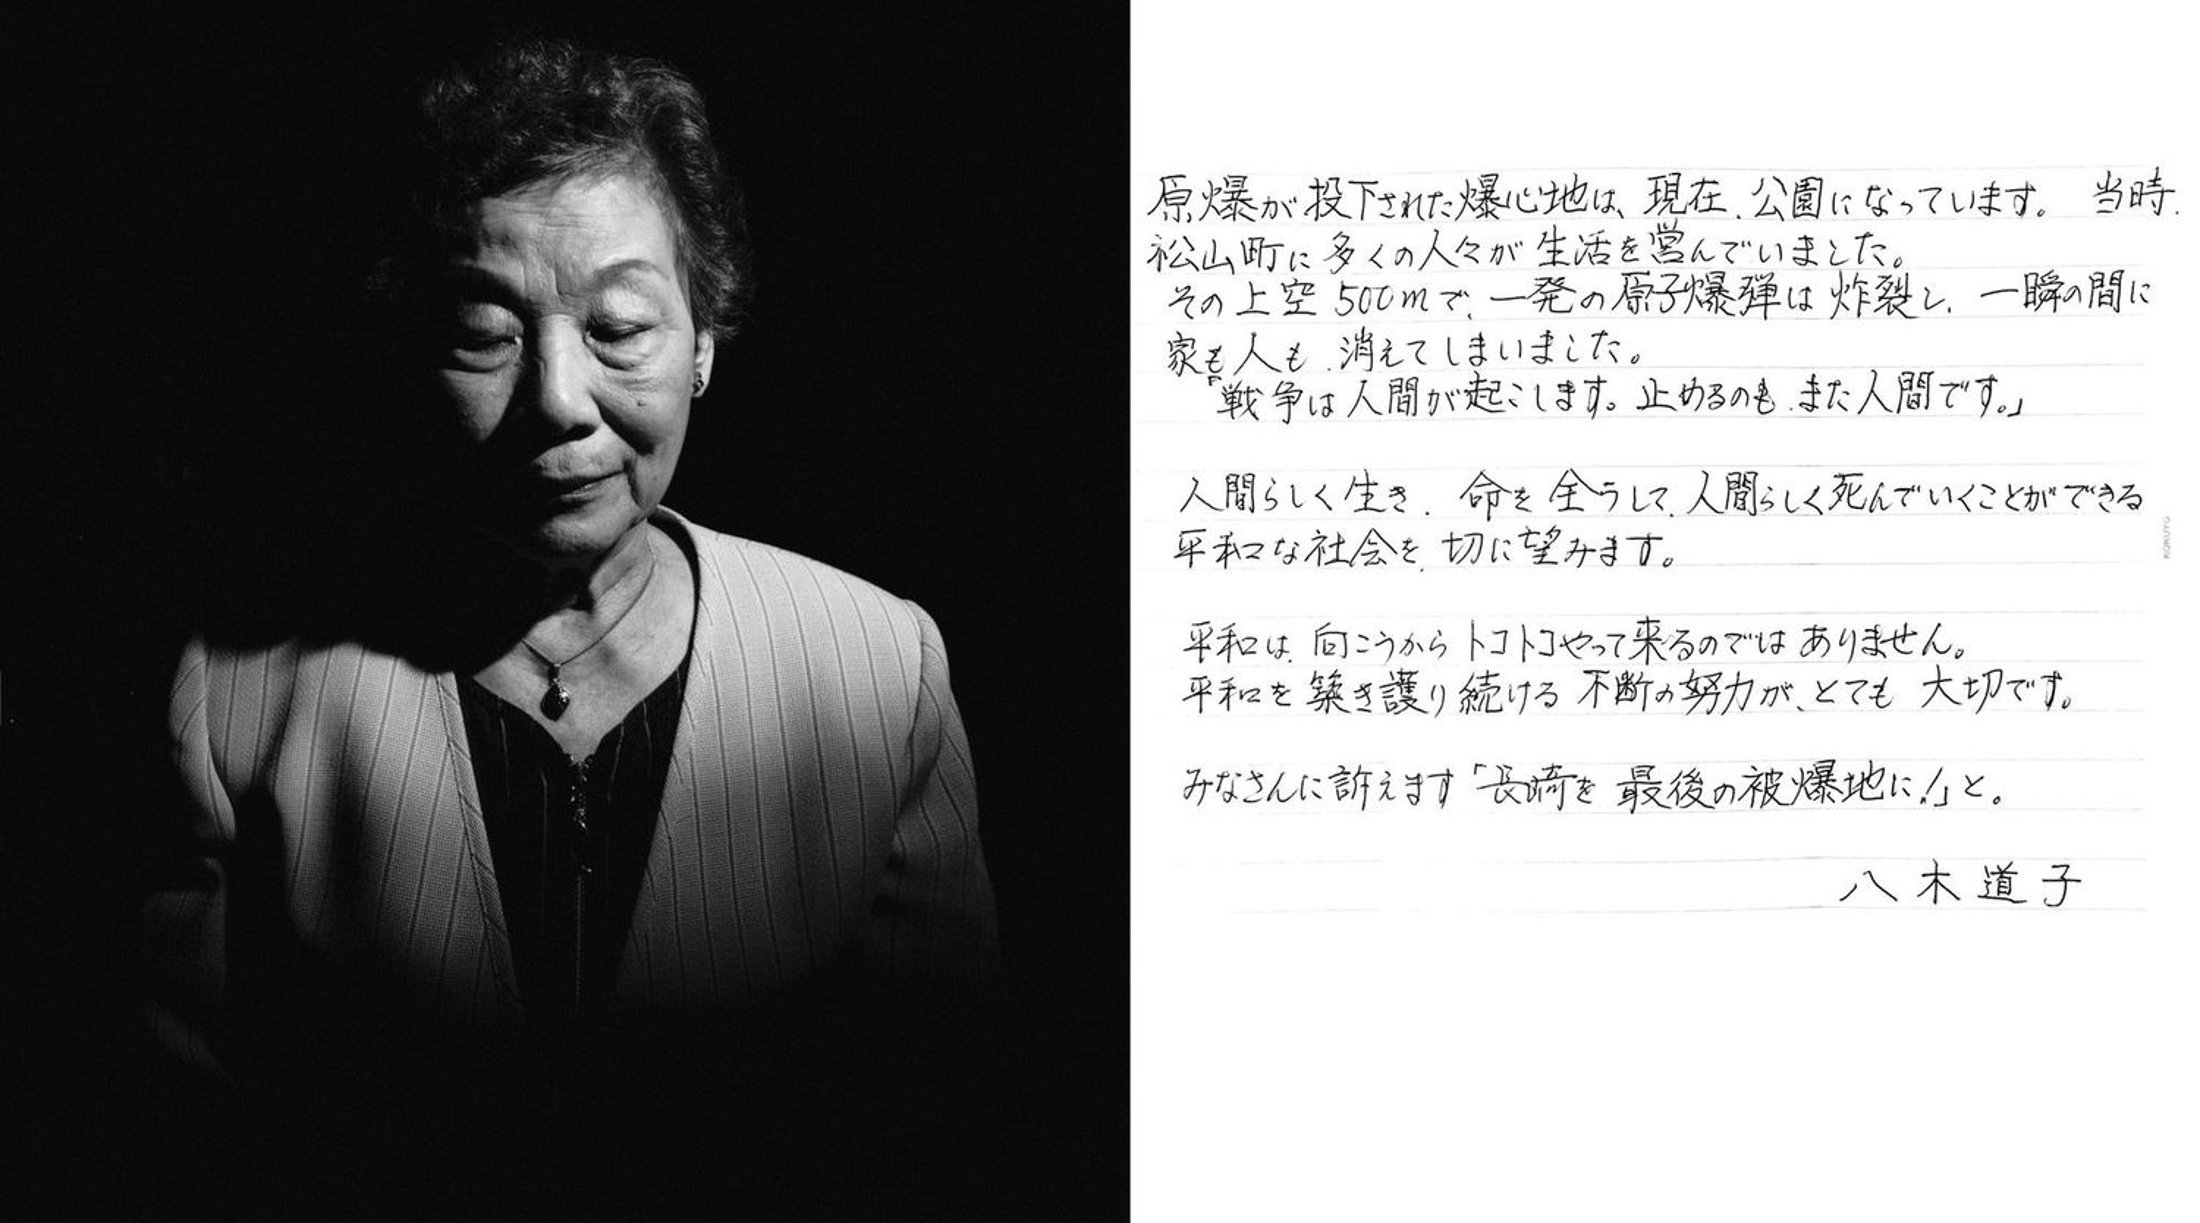 原爆が投下された爆心地は、現在、公園になっています。 当時、
松山町に多くの人々が生活を営んでいました。
その上空500mで、一発の原子爆弾は炸裂し、一瞬の間に
家も人も、消えてしまいました。
「戦争は人間が起こします。止めるのも、また人間です。」
人間らしく生き、命を全うして、人間らしく死んでいくことができる
平和な社会を、切に望みます。
平和は、向こうからトコトコやって来るのではありません。
平和を築き護り続ける不断の努力が、とても大切です。
みなさんに訴えます「長崎を最後の被爆地に!」と。
八木道子
KOKUYO